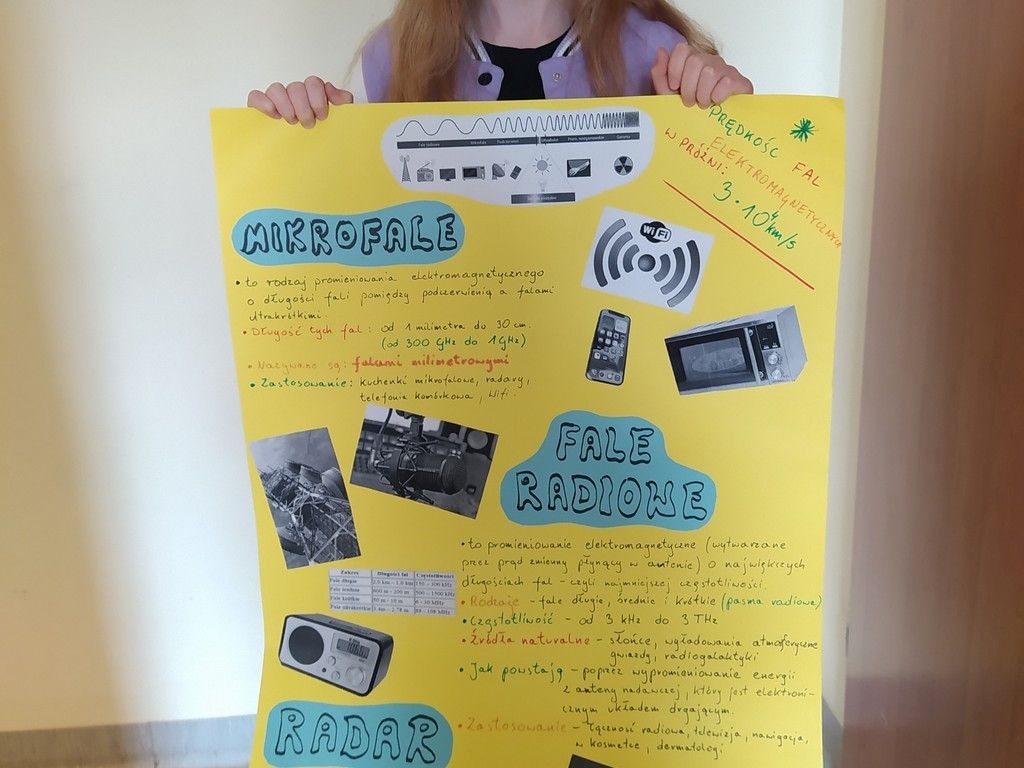 Fale radiowe Mikrofale Podczerwień Ultrafiolet Prom. rentgenowskie Gamma
PRĘDKOŚĆ FAL
ELEKTROMAGNETYCZNYCH
W PRÓŻNI:
3·10⁴ km/s
MIKROFALE
WiFi
• to rodzaj promieniowania elektromagnetycznego
o długości fali pomiędzy podczerwienią a falami
ultrakrótkimi.
• Długość tych fal: od 1 milimetra do 30 cm.
(od 300 GHz do 1 GHz)
• Nazywane są: falami milimetrowymi
• Zastosowanie: kuchenki mikrofalowe, radary,
telefonia komórkowa, Wifi.
FALE
RADIOWE
• to promieniowanie elektromagnetyczne (wytwarzane
przez prąd zmienny płynący w antenie) o największych
długościach fal - czyli najmniejszej częstotliwości.
• Rodzaje - fale długie, średnie i krótkie (pasma radiowe)
• Częstotliwość - od 3 kHz do 3 THz
• Źródła naturalne - słońce, wyładowania atmosferyczne
gwiazdy, radiogalaktyki
• Jak powstają - poprzez wypromieniowanie energii
z anteny nadawczej, który jest elektroni-
cznym układem drgającym.
• Zastosowanie - łączność radiowa, telewizja, nawigacja,
w kosmetce, dermatologi
Zakres Długości fal Częstotliwości
Fale długie 2.0 km - 1.0 km 150 - 300 kHz
Fale średnie 600 m - 200 m 500 - 1500 kHz
Fale krótkie
Fale ultrakrótkie
RADAR